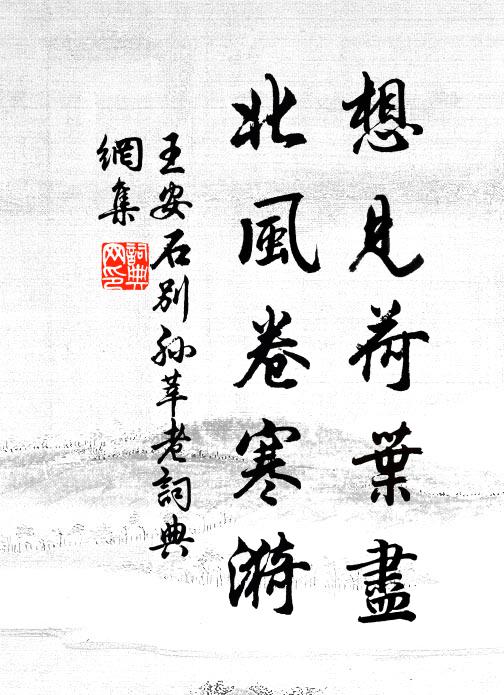 想見荷葉盡
北風卷寒漪
王安石別孫莘老詞典
網集
詞典
网印